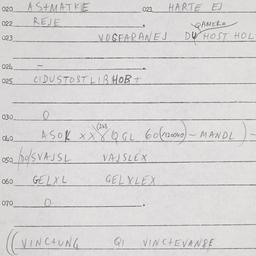 020 ASTMATKE 021 HARTE EJ
022 REJE
023 VOGFARANEJ HOST HOL
024 -
025 CIDUSTOSTLIBHOB+
030 0
040 ASOK XXX QGL 60 - MANDL) -
050 SVAJSL VAJSLEX
060 GELXL GELXLEX
070 0
((VINCTUNG QI VINCTEVANSE